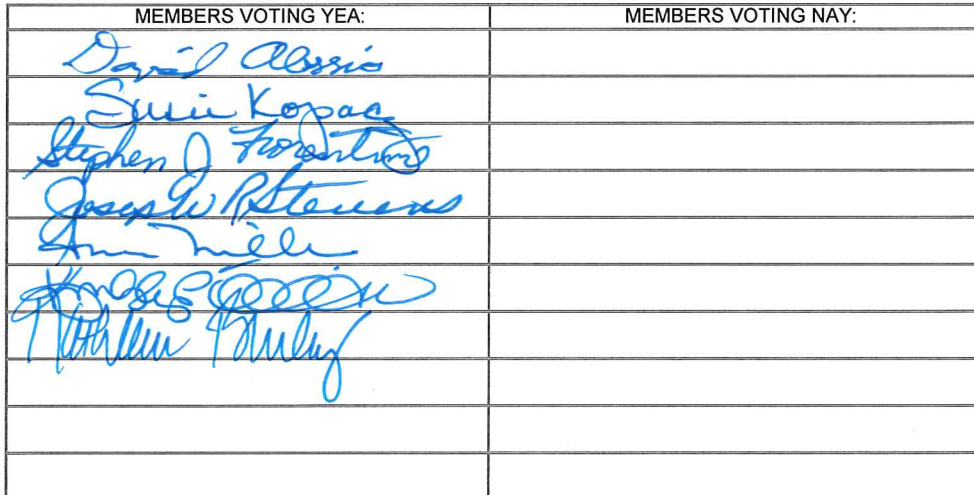 MEMBERS VOTING YEA: MEMBERS VOTING NAY:
David Alessio
Susie Kopacz
Stephen J Fiorentino
Joseph W R Stevens
Ann Mill
Kathleen